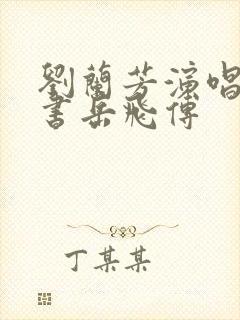 劉蘭芳演唱
書岳飛傳
丁某某